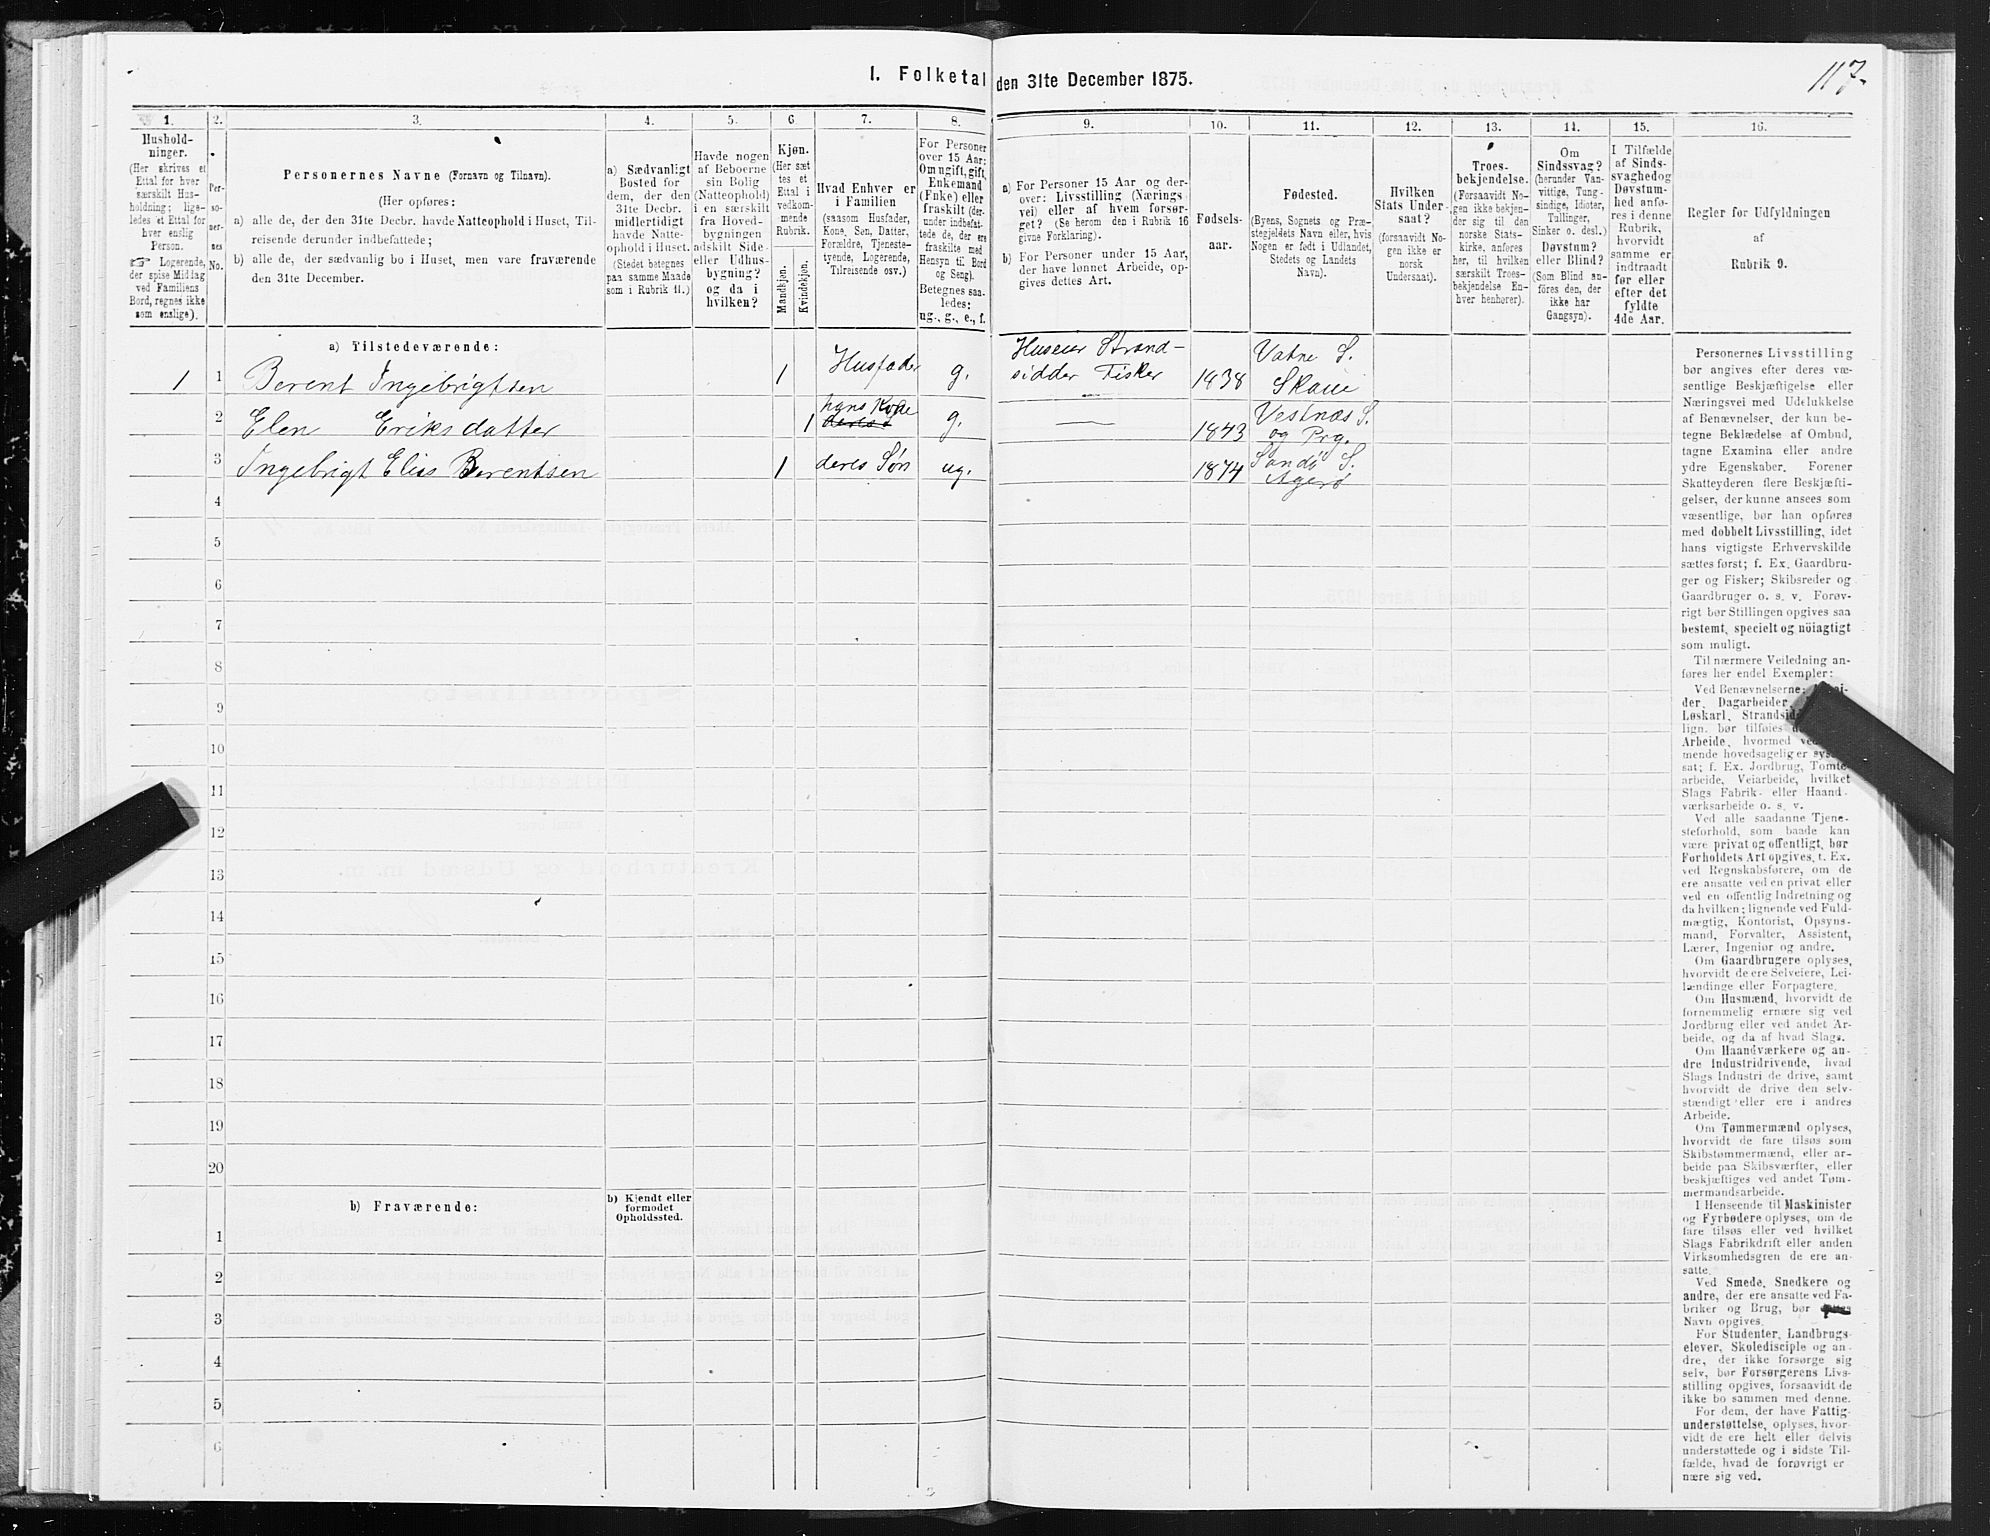 I. Folketal den 31te December 1875.
117.
1.
Hushold-
ninger.
(Her skrives et
Ettal for hver
særskilt Hus-
holdning; lige-
ledes et Ettal for
hver enslig
Person.
☞ Logerende,
der spise Middag
ved Familiens
Bord, regnes ikke
som enslige).
2.
Per-
so-
ner-
nes
No.
3.
Personernes Navne (Fornavn og Tilnavn).
(Her opføres:
a) alle de, der den 31te Decbr. havde Natteophold i Huset, Til-
reisende derunder indbefattede;
b) alle de, der sædvanlig bo i Huset, men vare fraværende
den 31te December.
4.
a) Sædvanligt
Bosted for
dem, der den
31te Decbr.
midlertidigt
havde Natte-
ophold i Huset.
(Stedet betegnes
paa samme Maade
som i Rubrik 11.)
5.
Havde nogen
af Beboerne
sin Bolig
(Natteophold)
i en særskilt
fra Hoved-
bygningen
adskilt Side-
eller Udhus-
bygning?
og da i
hvilken?
6
Kjøn.
(Her sæt
tes et
Ettal i
vedkom-
mende
Rubrik.
Mandkjøn.
Kvindekjøn.
7.
Hvad Enhver er
i Familien
(saasom Husfader,
Kone, Søn, Datter,
Forældre, Tjeneste-
tyende, Logerende,
Tilreisende osv.)
8.
For Personer
over 15 Aar:
Om ugift, gift,
Enkemand
(Enke) eller
fraskilt (der-
under indbefat-
tede de, der ere
fraskilte med
Hensyn til Bord
og Seng).
Betegnes saa-
ledes:
ug., g., e., f.
9.
a) For Personer 15 Aar og der-
over: Livsstilling (Nærings-
vei) eller af hvem forsør-
get? (Se herom den i Rubrik 16
givne Forklaring).
b) For Personer under 15 Aar,
der have lønnet Arbeide, op-
gives dettes Art.
10.
Fødsels-
aar.
11.
Fødested.
(Byens, Sognets og Præ-
stegjeldets Navn eller, hvis
Nogen er født i Udlandet,
Stedets og Landets
Navn).
12.
Hvilken
Stats Under-
saat?
(forsaavidt No-
gen ikke er
norsk
Undersaat).
13.
Troes-
bekjendelse.
(Forsaavidt No-
gen ikke bekjen-
der sig til den
norske Stats-
kirke, anføres
her, til hvilken
særskilt Troes-
bekjendelse En-
hver henhører).
14.
Om
Sindssvag?
(herunder Van-
vittige, Tung-
sindige, Idioter,
Tullinger,
Sinker o. desl.)
Døvstum?
eller Blind?
(Som Blind an-
føres den, der
ikke har
Gangsyn).
15.
I Tilfælde
af Sinds-
svaghed og
Døvstum-
hed anfø-
res i denne
Rubrik,
hvorvidt
samme er
indtraadt
før eller
efter det
fyldte
4de Aar.
16.
Regler for Udfyldningen
af
Rubrik 9.
a) Tilstedeværende:
1 1 Berent Ingebrigtsen 1 Husfader g. Huseier Strand-
sidder Fisker 1838 Vatne S.
Skoue
2 Elen Eriksdatter 1 hans Kone g. 1843 Vestnæs S.
og Prg.
3 Ingebrigt Elias Berentsen 1 deres Søn ug. 1874 Sandø S.
Agerø
4
5
6
7
8
9
10
11
12
13
14
15
16
17
18
19
20
b) Fraværende:
b) Kjendt eller
formodet
Opholdssted.
1
2
3
4
5
6
Personernes Livsstilling
bør angives efter deres væ-
sentlige Beskjæftigelse eller
Næringsvei med Udelukkelse
af Benævnelser, der kun be-
tegne Beklædelse af Ombud,
tagne Examina eller andre
ydre Egenskaber. Forener
Skatteyderen flere Beskjæfti-
gelser, der kunne ansees som
væsentlige, bør han opføres
med dobbelt Livsstilling, idet
hans vigtigste Erhvervskilde
sættes først; f. Ex. Gaardbru-
ger og Fisker; Skibsreder og
Gaardbruger o. s. v. Forøv-
rigt bør Stillingen opgives saa
bestemt, specielt og nøiagtigt
som muligt.
Til nærmere Veiledning an-
føres her endel Exempler:
Ved Benævnelserne:
der, Dagarbeider,
Løskarl,
lign. bør tilføies
Arbeide, hvormed
mende hovedsagelig er
sat; f. Ex. Jordbrug, Tomte-
arbeide, Veiarbeide, hvilket
Slags Fabrik- eller Haand-
værksarbeide o. s. v.
Ved alle saadanne Tjene-
steforhold, som baade kan
være privat og offentligt, bør
Forholdets Art opgives, t. Ex.
ved Regnskabsførere, om de
ere ansatte ved en privat eller
ved en offentlig Indretning og
da hvilken; lignende ved Fuld-
mægtig, Kontorist, Opsyns-
mand, Forvalter, Assistent,
Lærer, Ingeniør og andre.
Om Gaardbrugere oplyses,
hvorvidt de ere Selveiere, Lei-
lændinge eller Forpagtere.
Om Husmænd, hvorvidt de
fornemmelig ernære sig ved
Jordbrug eller ved andet Ar-
beide, og da af hvad Slags.
Om Haandværkere og an-
dre Industridrivende, hvad
Slags Industri de drive, samt
hvorvidt de drive den selv-
stændigt eller ere i andres
Arbeide.
Om Tømmermænd oplyses,
hvorvidt de fare tilsøs som
Skibstømmermænd, eller ar-
beide paa Skibsværfter, eller
beskjæftiges ved andet Tøm-
mermandsarbeide.
I Henseende til Maskinister
og Fyrbødere oplyses, om de
fare tilsøs eller ved hvilket
Slags Fabrikdrift eller anden
Virksomhedsgren de ere an-
satte.
Ved Smede, Snedkere og
andre, der ere ansatte ved Fa-
briker og Brug, bør
Navn opgives.
For Studenter, Landbrugs-
elever, Skoledisciple og an-
dre, der ikke forsørge sig
selv, bør Forsørgerens Livs-
stilling opgives, forsaavidt de
ikke bo sammen med denne.
For dem, der have Fattig-
understøttelse, oplyses, hvor-
vidt de ere helt eller delvis
understøttede og i sidste Til-
fælde, hvad de forøvrigt er-
nære sig ved.